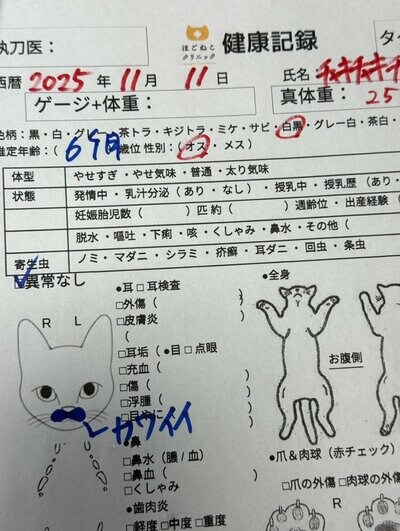 執刀医：
ほごねこ
クリニック
健康記録
西暦 2025 年 11 月 11 日
氏名：チャキチャキ
ゲージ+体重：
真体重：25
色柄：黒・白・グレー・茶トラ・キジトラ・ミケ・サビ・白黒・グレー白・茶白・
推定年齢：（6ヶ月 歳位 性別：（オス・メス）
体型 やせすぎ・やせ気味・普通・太り気味
状態 発情中・乳汁分泌（あり・なし）・授乳中・授乳歴（あり・
妊娠胎児数（ ）匹 約（ ）週齢位・出産経験（
脱水・嘔吐・下痢・咳・くしゃみ・鼻水・その他（
寄生虫 ノミ・マダニ・シラミ・疥癬・耳ダニ・回虫・条虫
異常なし
R L
●耳 □耳検査
□外傷（ ）
□皮膚炎
（ ）
□耳垢（●目 □点眼
□充血（ ）
□傷（ ）
□浮腫（ ）
□目やに
カワイイ
●鼻
□鼻水（膿/血）
□鼻血（ ）
□くしゃみ
●歯肉炎
□軽度□中度□重度
●全身
お腹側
●爪＆肉球（赤チェック）
□爪の外傷 □肉球の外傷
R